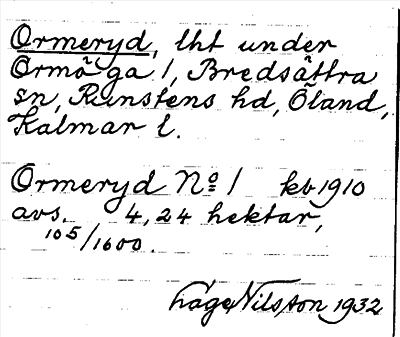 Ormeryd, lht under
Ormöga 1, Bredsättra
sn, Runstens hd, Öland,
Kalmar l.
Ormeryd No 1 kb 1910
avs. 4,24 hektar,
105/1600.
Håge Nilsson 1932